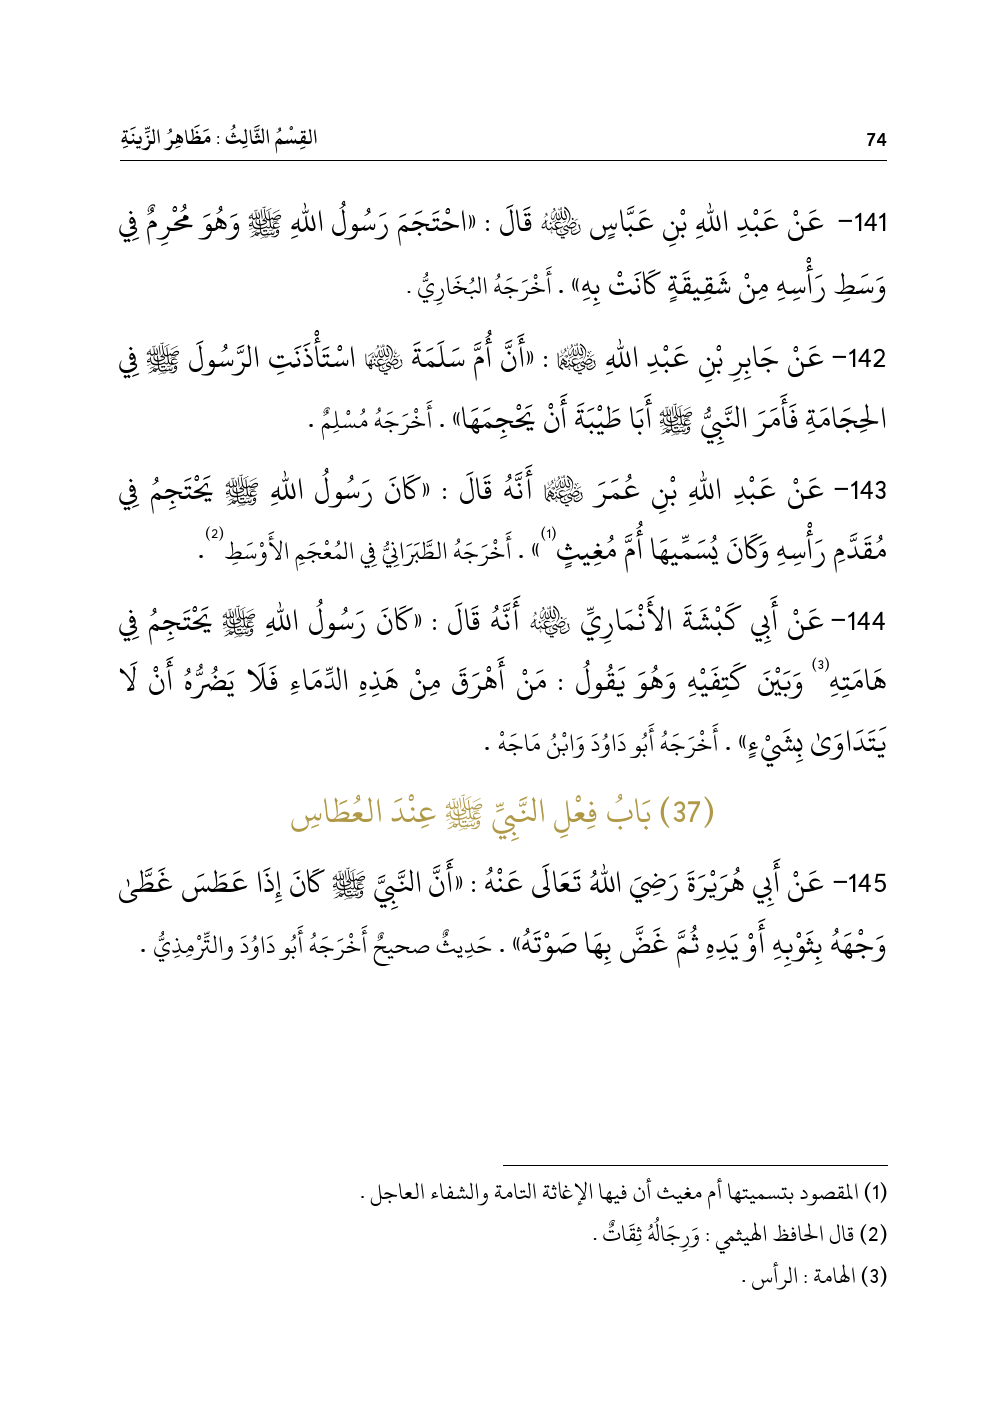 74 القِسْمُ الثَّالِثُ : مَظَاهِرُ الزِّينَةِ
141– عَنْ عَبْدِ اللهِ بْنِ عَبَّاسٍ رَضِيَ اللهُ عَنْهُ قَالَ : «احْتَجَمَ رَسُولُ اللهِ ﷺ وَهُوَ مُحْرِمٌ فِي
وَسَطِ رَأْسِهِ مِنْ شَقِيقَةٍ كَانَتْ بِهِ» . أَخْرَجَهُ البُخَارِيُّ .
142– عَنْ جَابِرِ بْنِ عَبْدِ اللهِ رَضِيَ اللهُ عَنْهُمَا : «أَنَّ أُمَّ سَلَمَةَ رَضِيَ اللهُ عَنْهَا اسْتَأْذَنَتِ الرَّسُولَ ﷺ فِي
الحِجَامَةِ فَأَمَرَ النَّبِيُّ ﷺ أَبَا طَيْبَةَ أَنْ يَحْجِمَهَا» . أَخْرَجَهُ مُسْلِمٌ .
143– عَنْ عَبْدِ اللهِ بْنِ عُمَرَ رَضِيَ اللهُ عَنْهُمَا أَنَّهُ قَالَ : «كَانَ رَسُولُ اللهِ ﷺ يَحْتَجِمُ فِي
مُقَدَّمِ رَأْسِهِ وَكَانَ يُسَمِّيهَا أُمَّ مُغِيثٍ(1)» . أَخْرَجَهُ الطَّبَرَانِيُّ فِي المُعْجَمِ الأَوْسَطِ(2) .
144– عَنْ أَبِي كَبْشَةَ الأَنْمَارِيِّ رَضِيَ اللهُ عَنْهُ أَنَّهُ قَالَ : «كَانَ رَسُولُ اللهِ ﷺ يَحْتَجِمُ فِي
هَامَتِهِ(3) وَبَيْنَ كَتِفَيْهِ وَهُوَ يَقُولُ : مَنْ أَهْرَقَ مِنْ هَذِهِ الدِّمَاءِ فَلَا يَضُرُّهُ أَنْ لَا
يَتَدَاوَىٰ بِشَيْءٍ» . أَخْرَجَهُ أَبُو دَاوُدَ وَابْنُ مَاجَهْ .
(37) بَابُ فِعْلِ النَّبِيِّ ﷺ عِنْدَ العُطَاسِ
145– عَنْ أَبِي هُرَيْرَةَ رَضِيَ اللهُ تَعَالَى عَنْهُ : «أَنَّ النَّبِيَّ ﷺ كَانَ إِذَا عَطَسَ غَطَّىٰ
وَجْهَهُ بِثَوْبِهِ أَوْ يَدِهِ ثُمَّ غَضَّ بِهَا صَوْتَهُ» . حَدِيثٌ صحيحٌ أَخْرَجَهُ أَبُو دَاوُدَ والتِّرْمِذِيُّ .
(1) المقصود بتسميتها أم مغيث أن فيها الإغاثة التامة والشفاء العاجل .
(2) قال الحافظ الهيثمي : وَرِجَالُهُ ثِقَاتٌ .
(3) الهامة : الرأس .